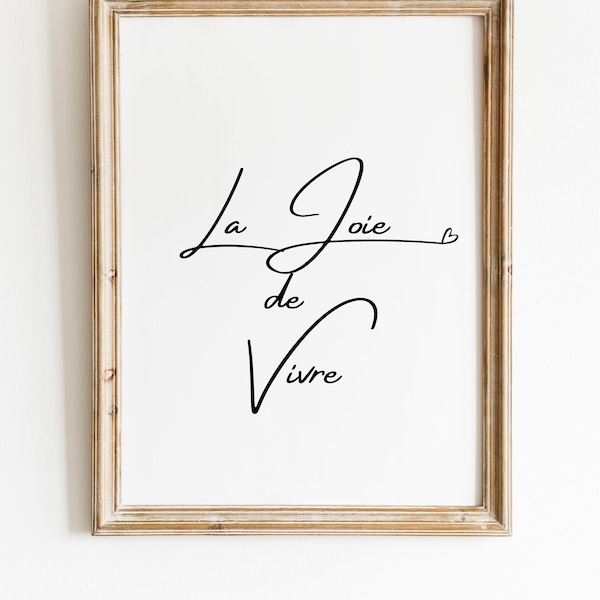 La Joie
de
Vivre